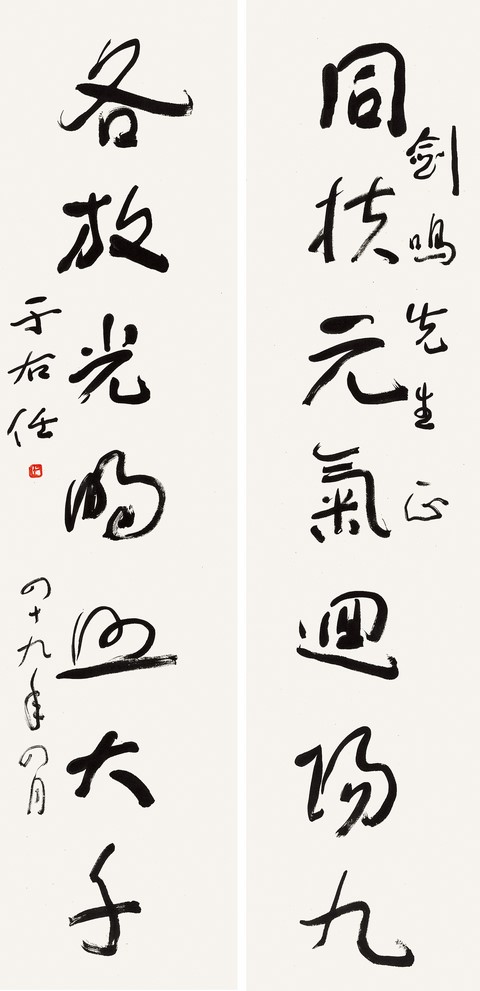 劍鳴先生 正
同扶元氣迴陽九
各放光明照大千
于右任
四十九年四月